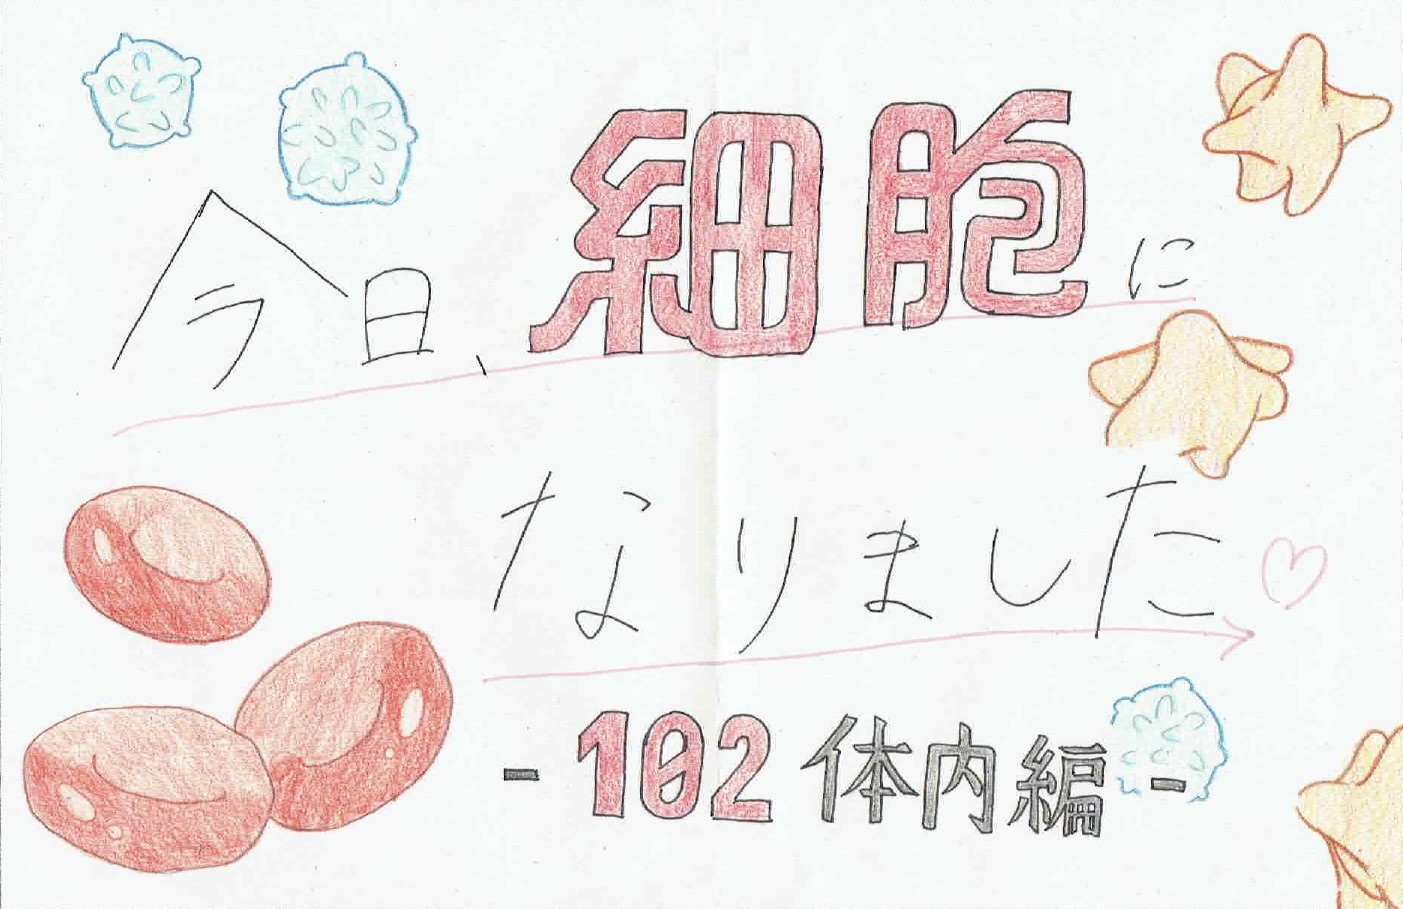 今日、細胞に
なりました♡
-102 体内編-